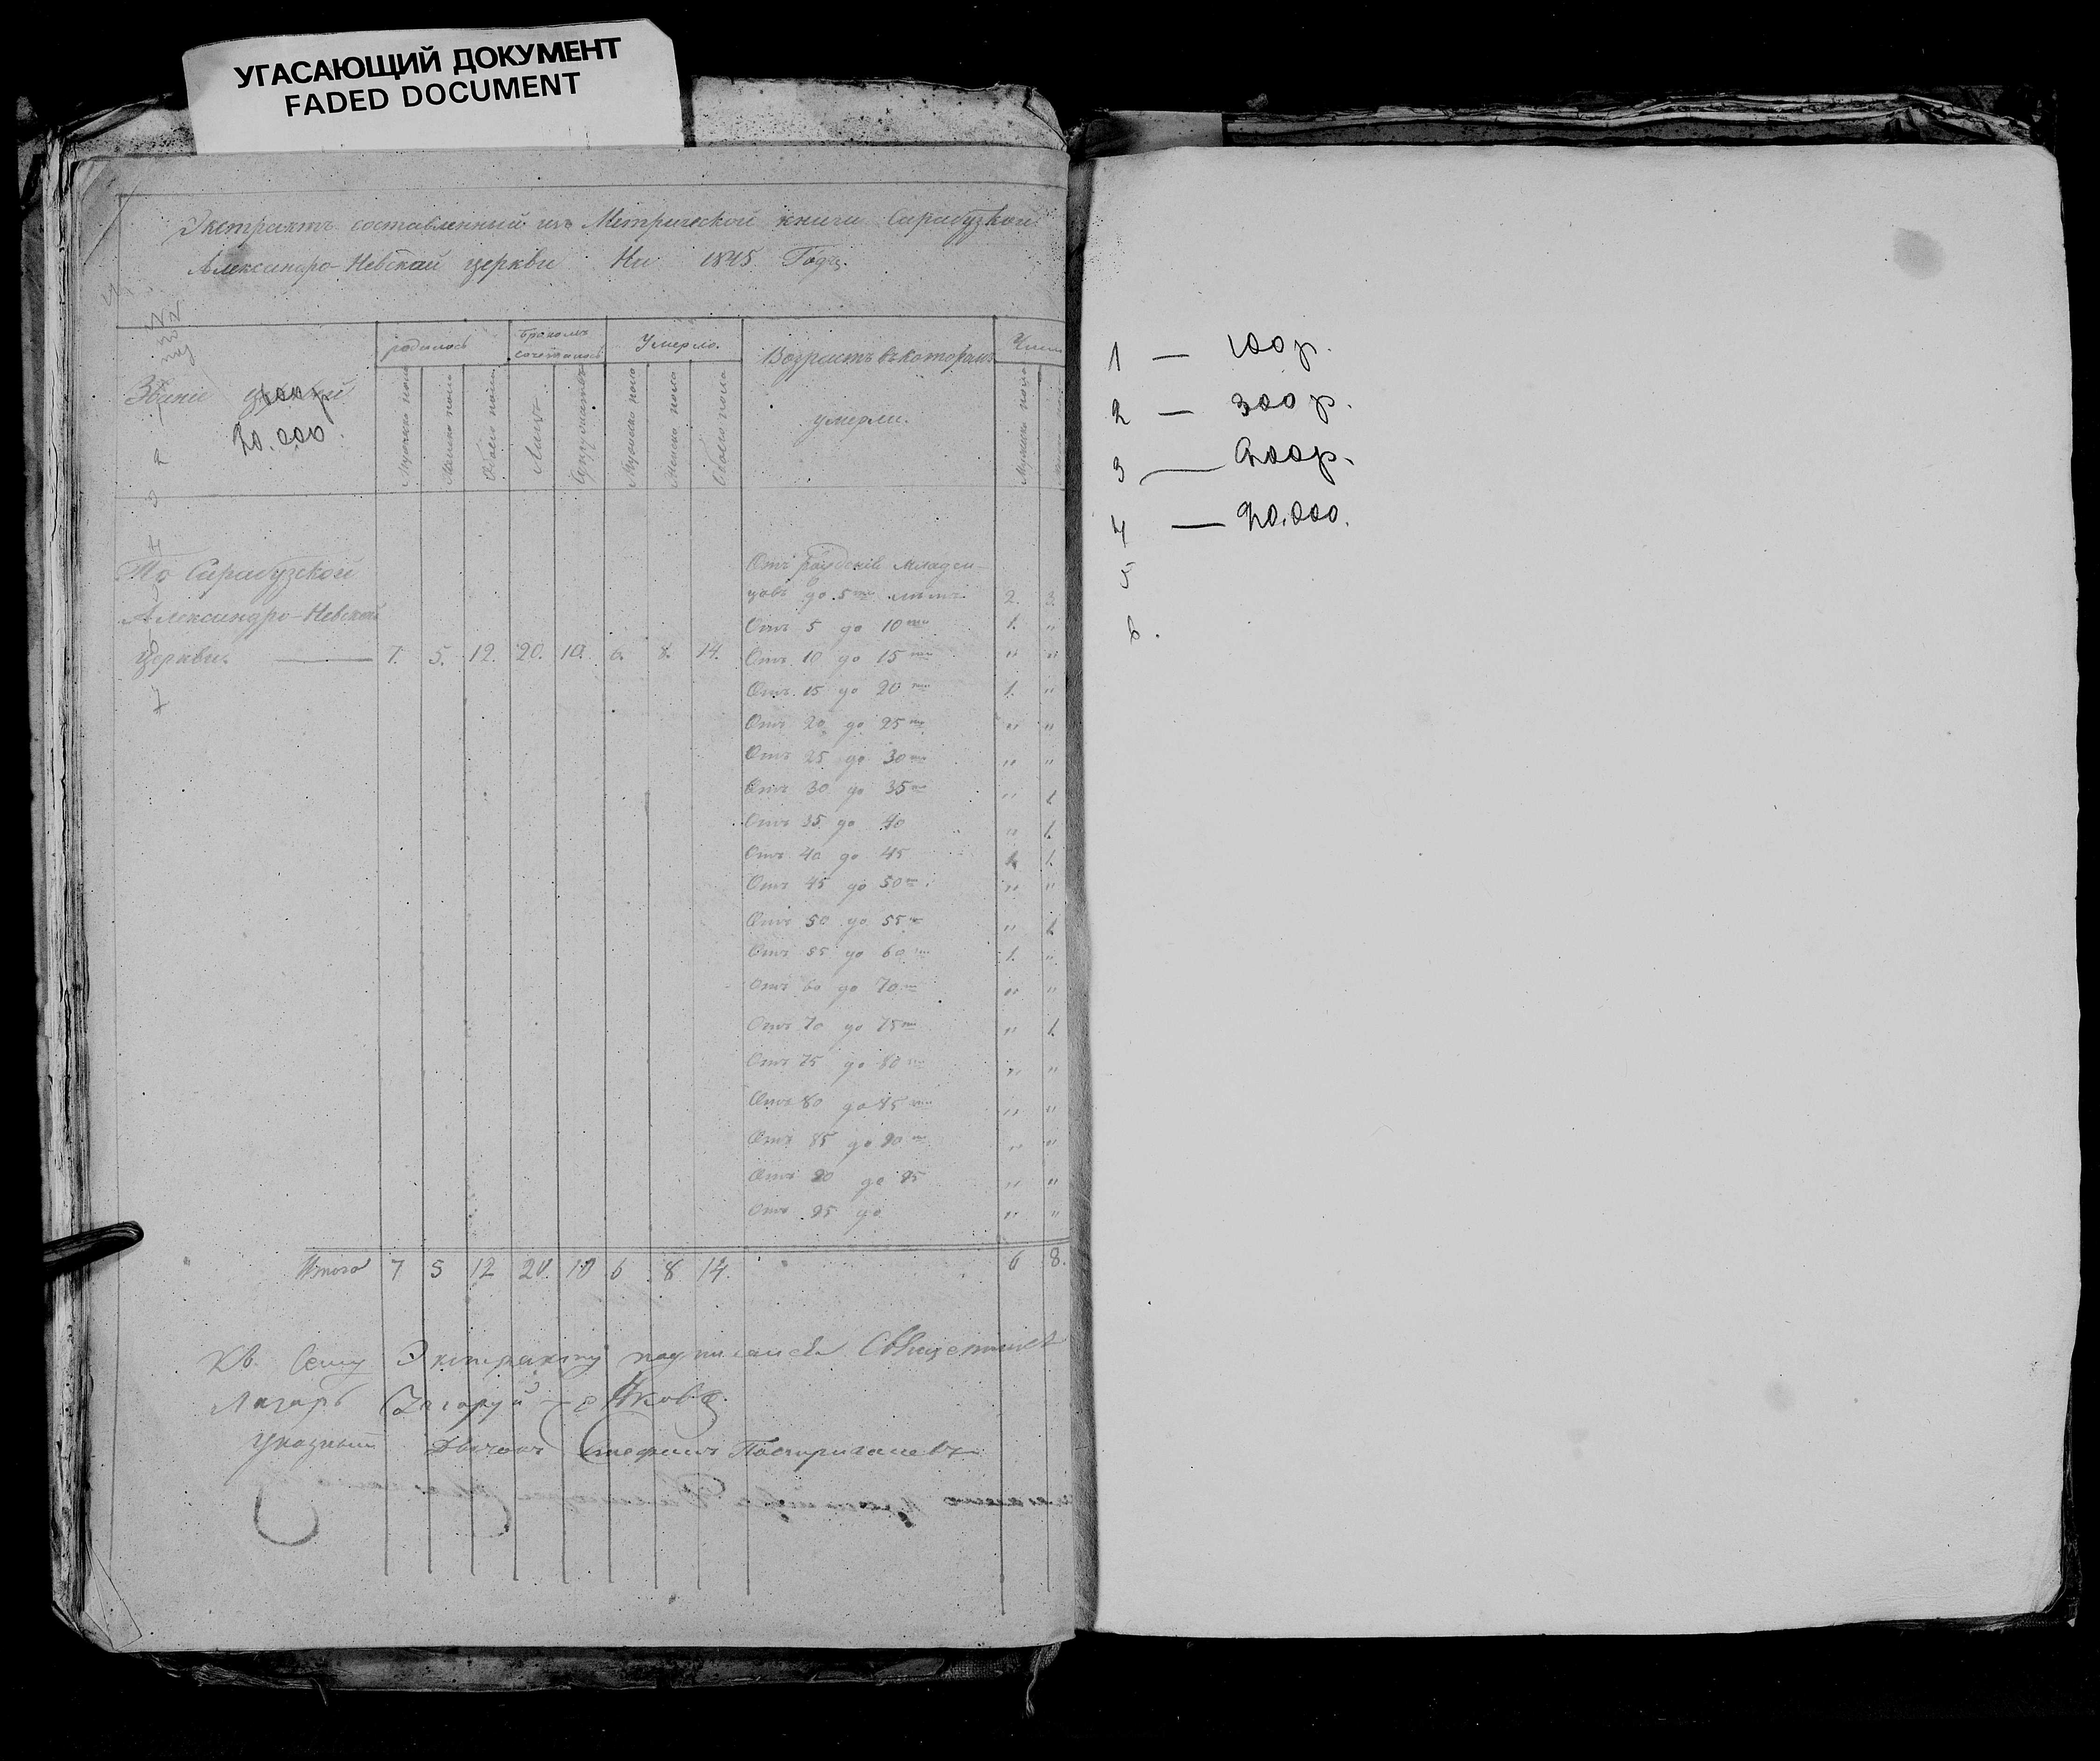 УГАСАЮЩИЙ ДОКУМЕНТ
FADED DOCUMENT
Экстрактъ составленный изъ Метрической книги Сарабузской
Александро-Невской церкви На 1845 Годъ.
родилось
бракомъ сочеталось
Умерло.
Возрастъ въ которомъ умерли.
Число
Званіе церквей
20.000.
Мужеска пола
Женска пола
Обоего пола
Лицъ
Мужеска пола
Женска пола
Обоего пола
Мужеска пола
По Сарабузской
Александро-Невской
церкви. — 7. 5. 12. 20. 10. 6. 8. 14.
Отъ рожденія младен-
цовъ до 5ти лѣтъ 2. 3
Отъ 5 до 10ти 1. "
Отъ 10 до 15ти " "
Отъ 15 до 20ти 1. "
Отъ 20 до 25ти " "
Отъ 25 до 30ти " "
Отъ 30 до 35ти " 1
Отъ 35 до 40 " 1.
Отъ 40 до 45 1. 1.
Отъ 45 до 50ти " "
Отъ 50 до 55ти " 1
Отъ 55 до 60ти 1. "
Отъ 60 до 70ти " "
Отъ 70 до 75ти " 1.
Отъ 75 до 80ти " "
Отъ 80 до 85ти " "
Отъ 85 до 90ти " "
Отъ 90 до 95 " "
Отъ 95 до " "
Итого 7 5 12 20. 10 6 8 14. 6 8.
Къ Сему Экстракту подписался Священникъ
Лазарь
Указный Дьячокъ Стефанъ
1 — 100 р.
2 — 300 р.
3 — 600 р.
4 — 20.000.
5
6.